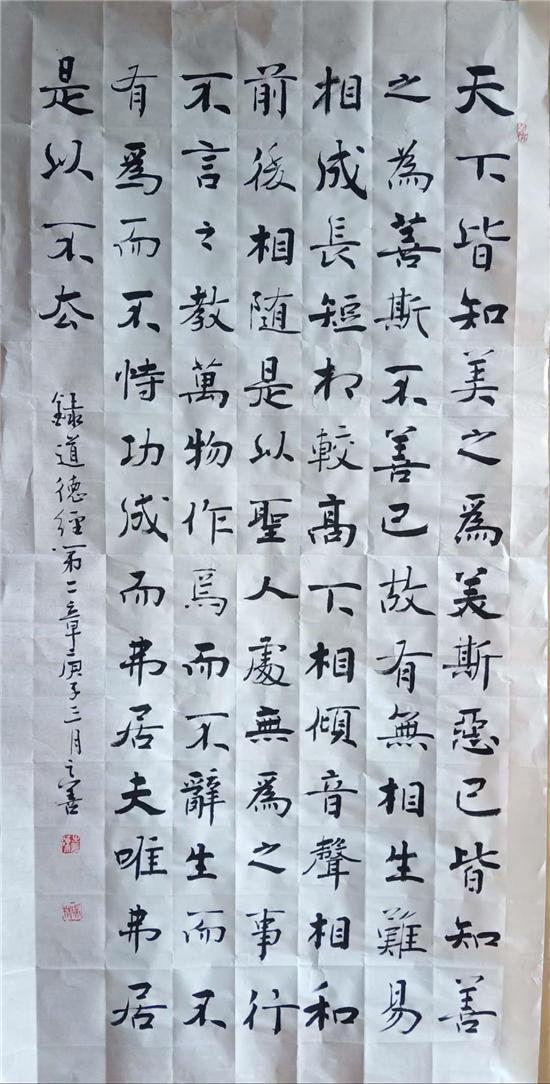 天下皆知美之爲美斯惡已皆知善
之為善斯不善已故有無相生難易
相成長短相較高下相傾音聲相和
前後相隨是以聖人處無爲之事行
不言之教萬物作焉而不辭生而不
有爲而不恃功成而弗居夫唯弗居
是以不去
録道德經第二章庚子三月之善